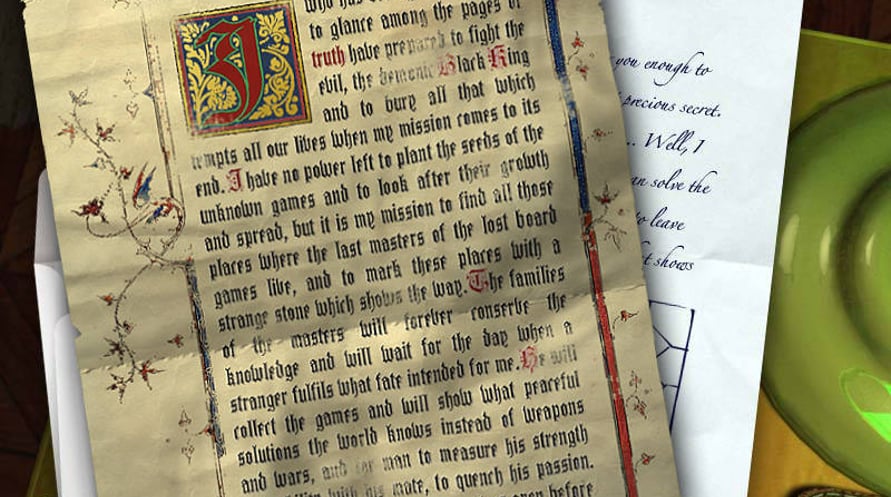 who has
to glance among the pages of
truth have prepared to fight the
evil, the demonic Black King
and to bury all that which
tempts all our lives when my mission comes to its
end. I have no power left to plant the seeds of the
unknown games and to look after their growth
and spread, but it is my mission to find all those
places where the last masters of the lost board
games live, and to mark these places with a
strange stone which shows the way. The families
of the masters will forever conserve the
knowledge and will wait for the day when a
stranger fulfils what fate intended for me. He will
collect the games and will show what peaceful
solutions the world knows instead of weapons
and wars, and for man to measure his strength
with his mate, to quench his passion.
before
you enough to
precious secret.
... Well, I
can solve the
to leave
shows